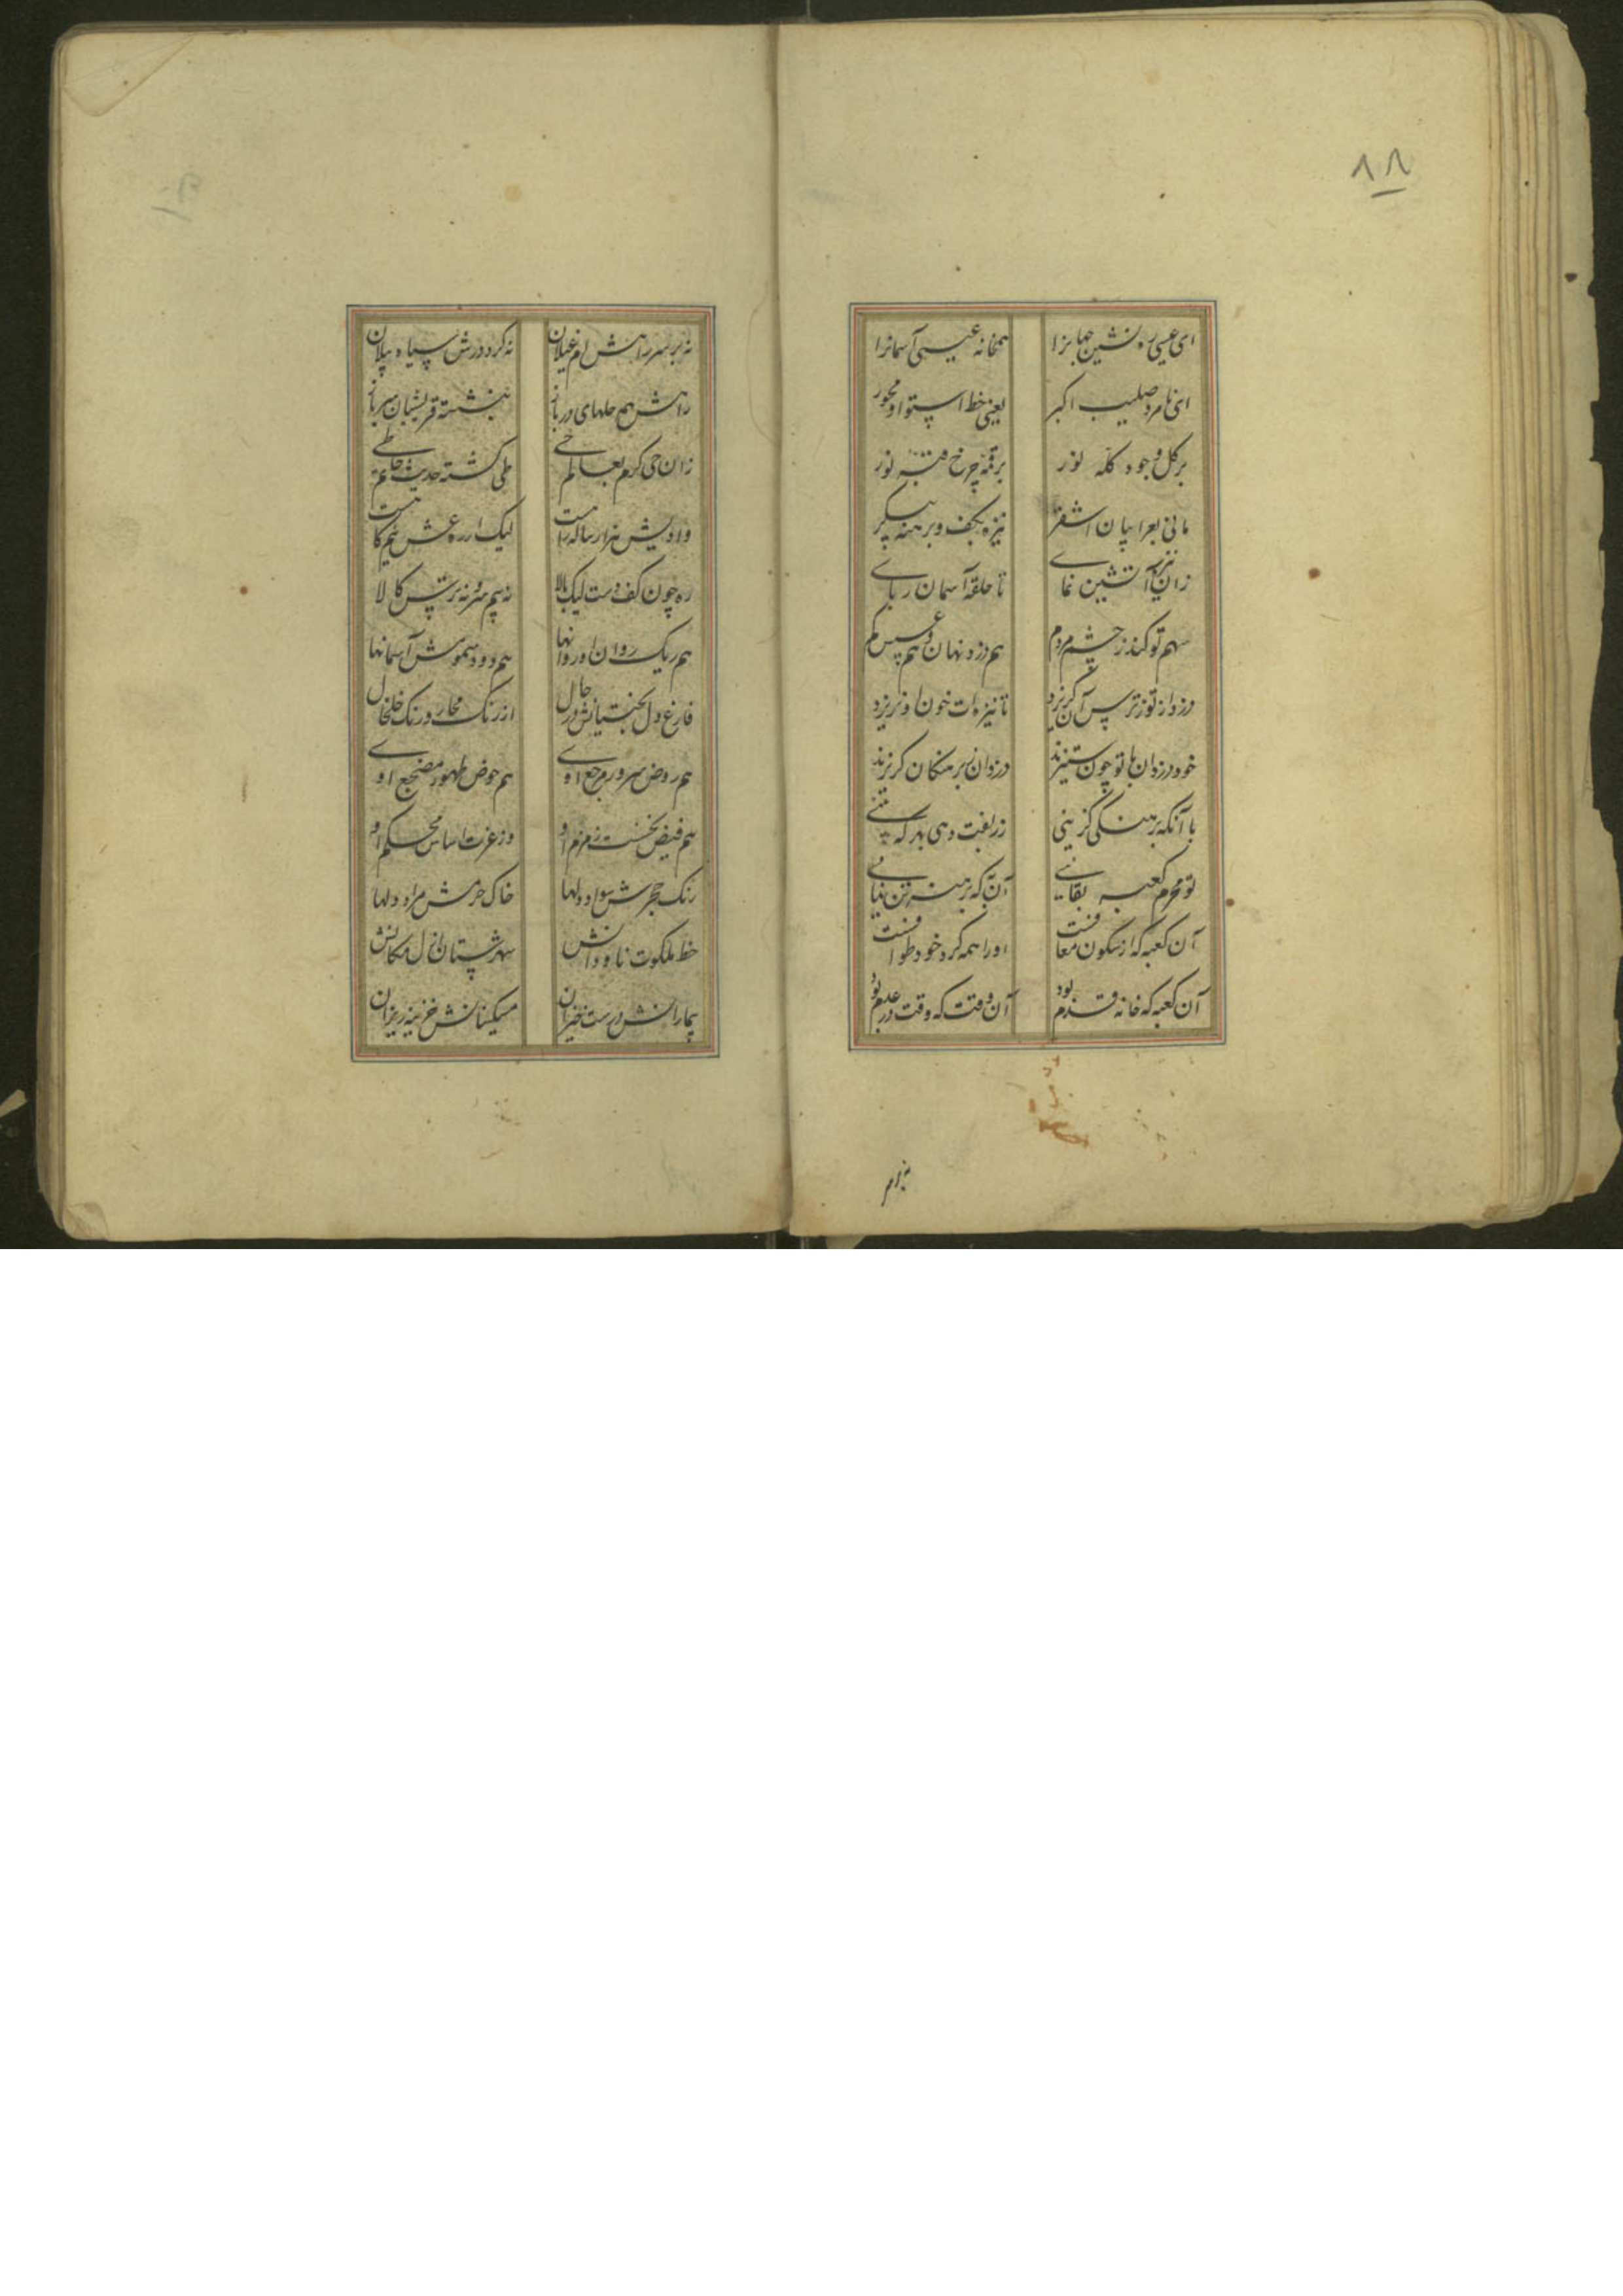 ۸۸
ای عیسی ره نشین جهانرا
همخانه عیسی آسمانرا
ای نامزد صلیب اکبر
یعنی خط استوا و محور
بر کل وجود کله نور
بر قمه چرخ قبه نور
مانی بعرابیان اشقر
نیزه بکف و برهنه پیکر
زان نیزه آتشین نمای
تا حلقه آسمان ربای
سهم تو کند ز چشم مردم
هم دزد نهان و هم عسس گم
دزد از تو ز ترس آن گریزد
تا نیزه ات خون او نریزد
خود دزدان با تو چون ستیزند
دزدان ز برهنگان گریزند
با آنکه برهنگی گزینی
زربفت دهی بهر که بینی
تو محرم کعبه بقایی
آن به که برهنه تن نیایی
آن کعبه که از سکون معافست
او را همه گرد خود طوافست
آن کعبه که خانه قدم بود
آن وقت که وقت در عدم بود
نه بر
نه بر سر راهش ام غیلان
نه گرد درش سپاه پیلان
راهش هم حلهای دربانی
بنشسته قریشیان
زان حی کرم بعالم حی
طی گشته حدیث حاتم طی
وادیش هزار ساله راهست
لیک از ره عشق نیم گامست
ره چون کف دست لیک بالا
نه بیم سر و نه ترس کالا
هم ریک روان او روانها
هم دود سمومش آسمانها
فارغ دل بختیانش در حال
از زنگ محار و زنگ خلخال
هم روض سرور مرجع اوی
هم حوض طهور مضجع اوی
هم فیض نخست زمزم او
وز عزت اساس محکم او
رنگ حجرش سواد دلها
خاک حرمش مراد دلها
خط ملکوت ناودانش
شهرستان ازل مکانش
بیمارانش درست خیزان
مسکینانش خزینه ریزان